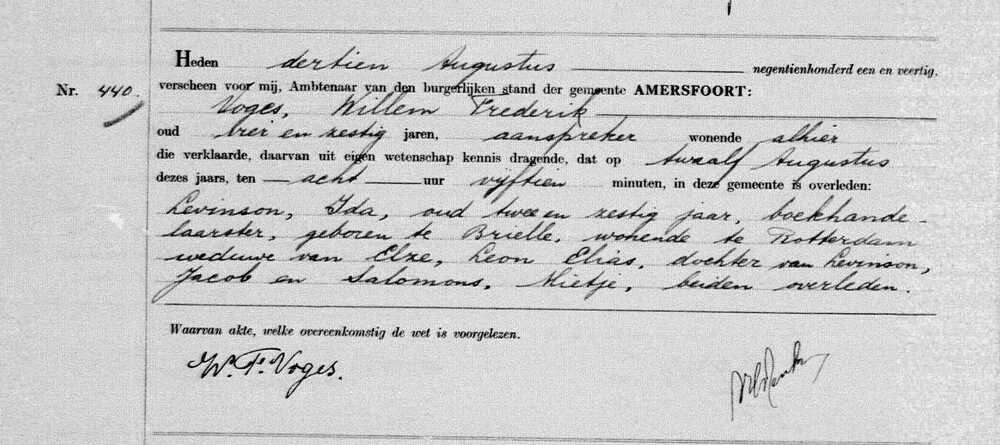 Heden dertien Augustus negentienhonderd een en veertig.
Nr. 440. verscheen voor mij, Ambtenaar van den burgerlijken stand der gemeente AMERSFOORT:
Voges, Willem Frederik
oud vier en zestig jaren, aanspreker wonende alhier
die verklaarde, daarvan uit eigen wetenschap kennis dragende, dat op twaalf Augustus
dezes jaars, ten acht uur vijftien minuten, in deze gemeente is overleden:
Levinson, Ida, oud twee en zestig jaar, boekhande-
laarster, geboren te Brielle, wonende te Rotterdam
weduwe van Elze, Leon Elias, dochter van Levinson,
Jacob en Salomons, Mietje, beiden overleden.
Waarvan akte, welke overeenkomstig de wet is voorgelezen.
W. F. Voges.